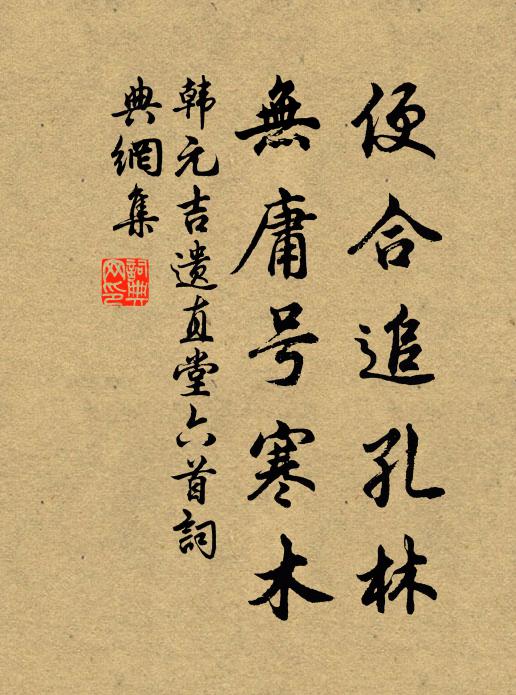 便合追孔林
無庸号寒木
韩元吉遗直堂六首詞
典網集
詞典
网印